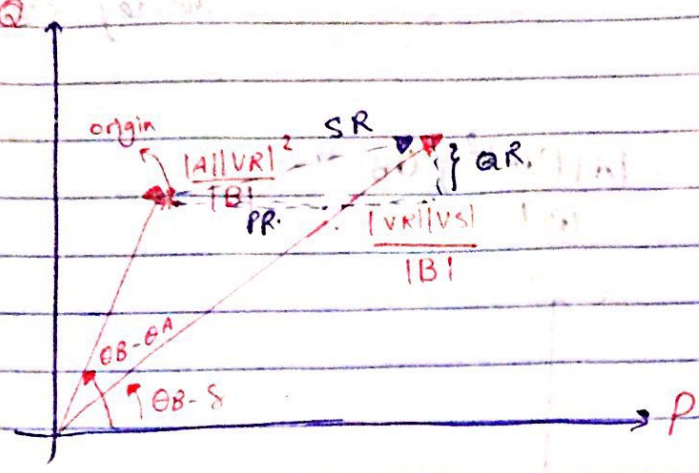 Q
origin
SR
|A||VR|²
|B|
QR.
PR.
|VR||VS|
|B|
θB-θA
θB-δ
P